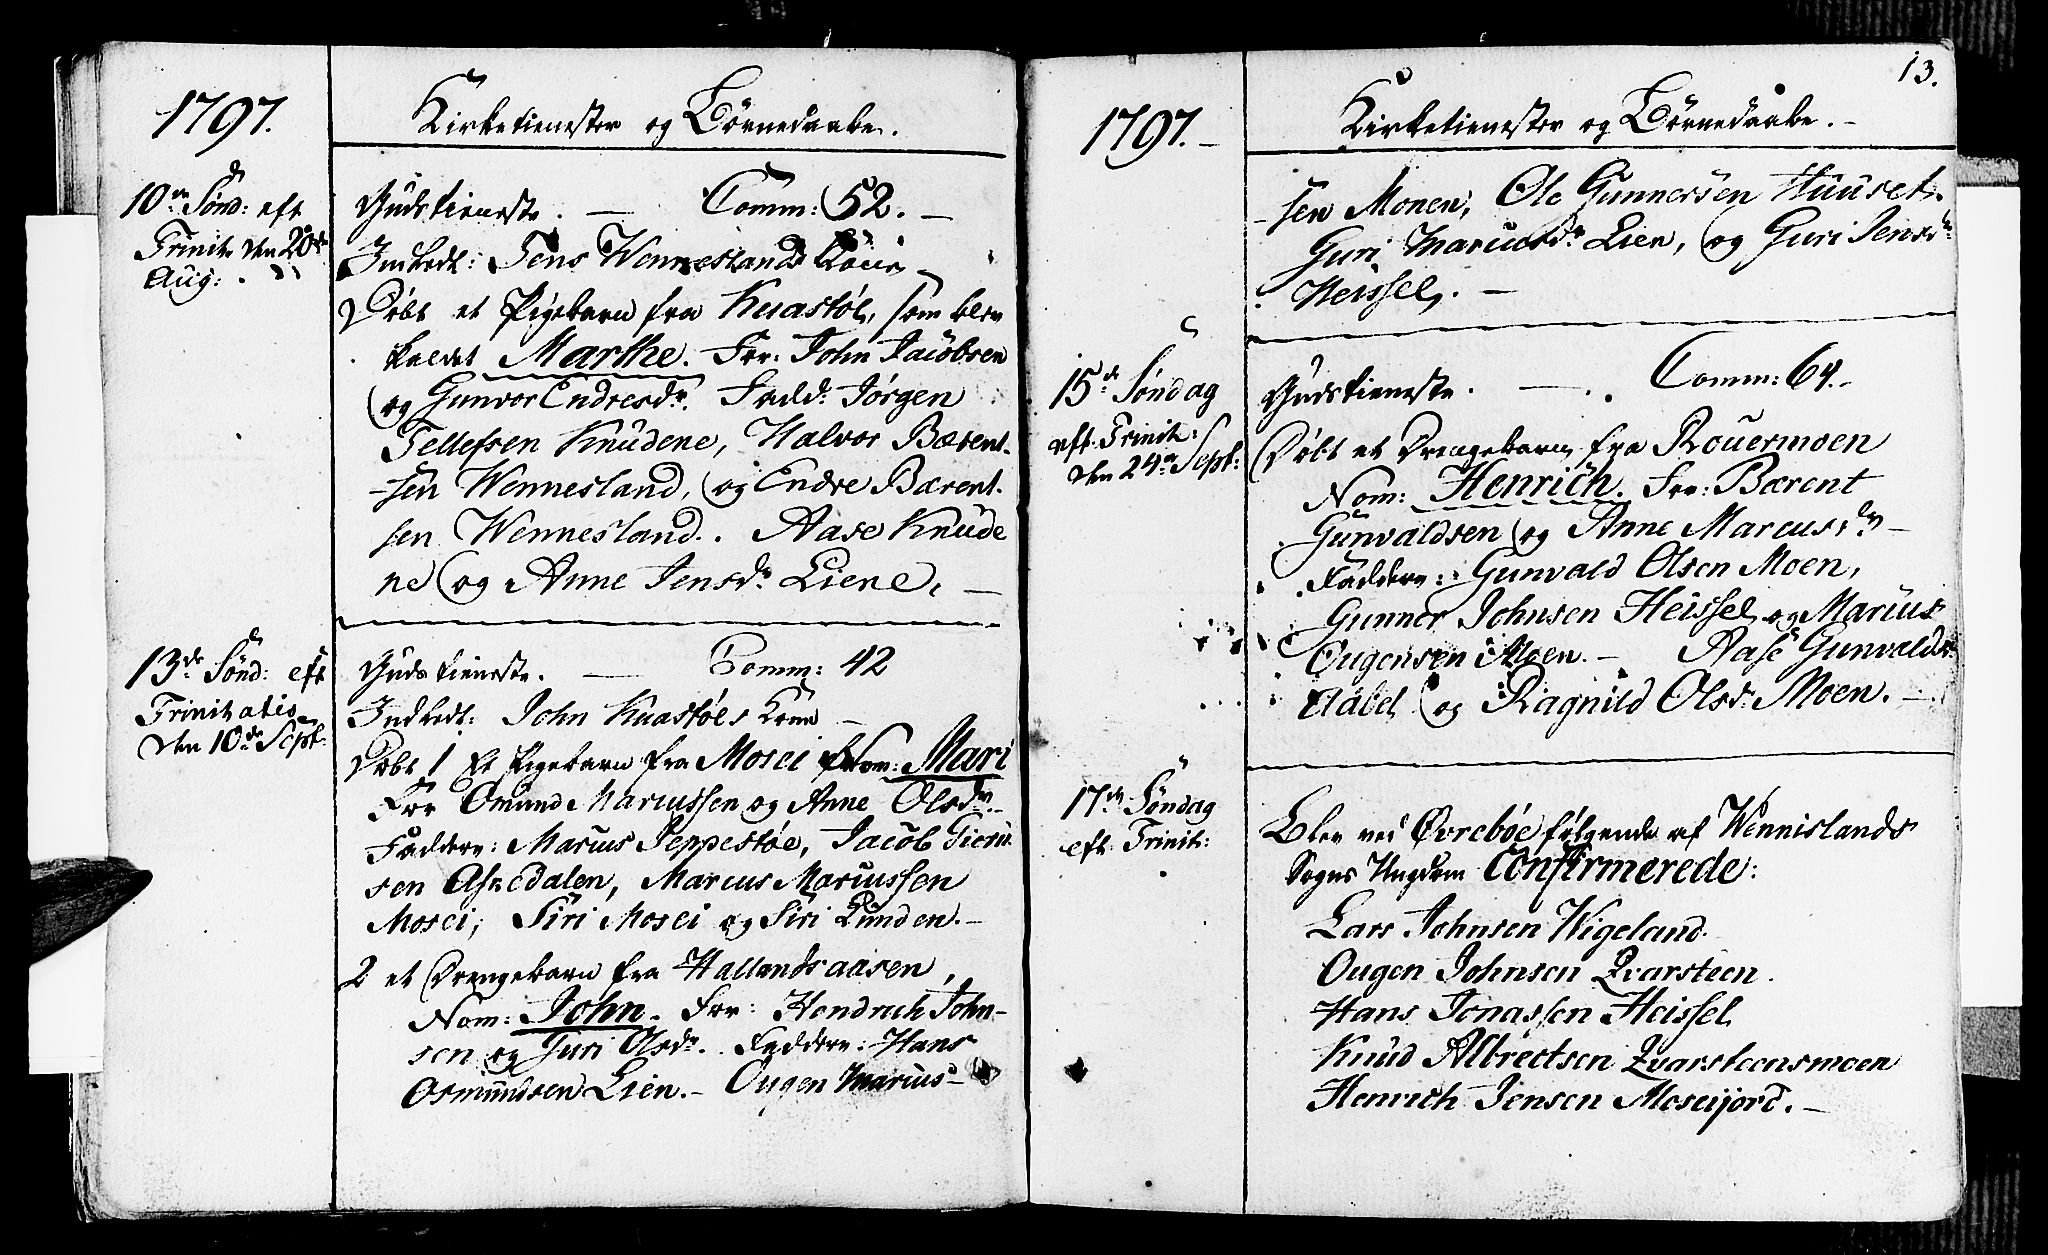 1797.
Kirketienester og Børnedaabe.
10de Sønd: eft
Trinit. den 20de
Aug:
Gudstieneste. — Comm: 52. —
Indledt: Jens Wenneslands Kone —
Døbt et Pigebarn fra Knastøl, som blev
kaldet Marthe. For: John Jacobsen
og Gunvor Endresdr. Fadd: Jørgen
Tellefsen Knudene, Halvor Bærent-
-sen Wennesland, og Endre Bærent-
sen Wennesland. Aase Knude
ne og Anne Jensdr. Liene, —
13de Sønd: eft
Trinitatis
den 10de Sept:
Gudstieneste. — Comm: 42
Indledt: John Knastøls Kone —
Døbt 1 Et Pigebarn fra Mosei Nom: Mari
For Omund Marcussen og Anne Olsdr.
Faddere: Marius Jeppestøe, Jacob Gieru-
sen Aasedalen, Marcus Mariussen
Mosei, Siri Mosei og Siri Lunden. —
2 et Drengebarn fra Hallandsaasen,
Nom: John. For: Hendrich John-
sen og Guri Olsdr. Faddere: Hans
Osmundsen Lien. — Ougen Marius-
13.
1797. —
Kirketienester og Børnedaabe. —
-sen Monen, Ole Gunnersen Huuset.
Guri Marcusdr. Lien, og Guri Jensdr
Heissel. —
15de Søndag
eft. Trinit:
den 24de Sept:
Gudstieneste. — Comm: 64. —
Døbt et Drengebarn fra Rouermoen
Nom: Henrich. For: Bærent
Gunvaldsen og Anne Marcusdr —
Faddere: Gunvald Olsen Moen,
Gunner Johnsen Heissel og Marius
Ougensen Moen. — Aase Gunvaldsdr
og Ragnild Olsdr. Moen. —
17de Søndag
eft. Trinit:
Blev ved Øvrebøe følgende af Wennislands
Sogns Ungdom Confirmerede:
Lars Johnsen Wigeland.
Ougen Johnsen Qvarsteen.
Hans Jonassen Heissel
Knud Albrectsen Qvarsteensmoen
Henrich Jensen Moseijord. —